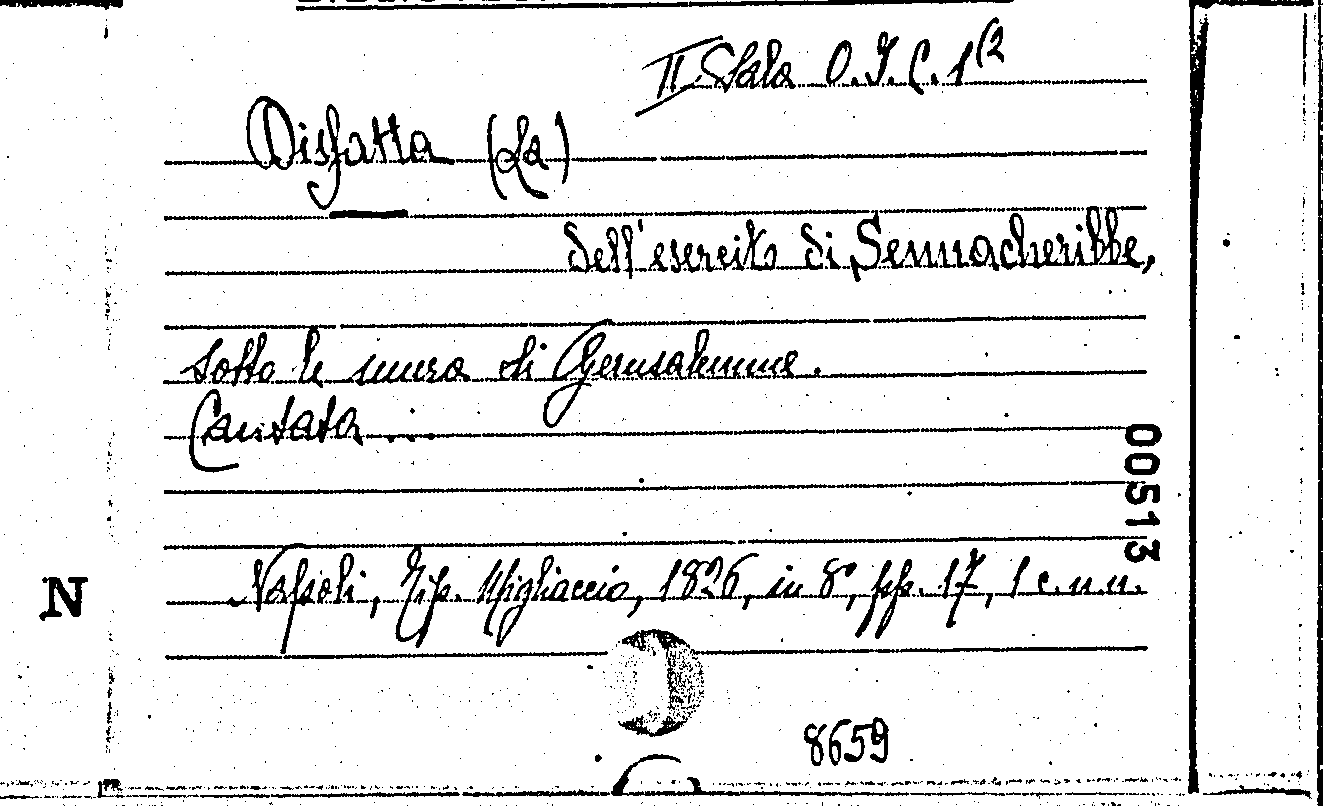 II Sala O.I.C. 1(2
Disfatta (La)
dell'esercito di Sennacheribbe,
sotto le mura di Gerusalemme.
Cantata ...
00513
Napoli, Tip. Migliaccio, 1826, in 8°, pp. 17, 1 c.n.n.
N
8659